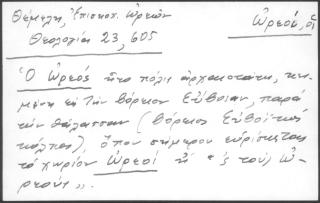 Θέμελη, Ἐπισκοπ. Ὠρεῶν
Θεολογία 23, 605
Ὠρεός, ὁ
Ὁ Ὠρεός ἦτο πόλις ἀρχαιοτάτη, κει-
μένη εἰς τὴν βόρειον Εὔβοιαν, παρά
τήν θάλασσαν (βόρειος Εὐβοϊκός
κόλπος), ὅπου σήμερον εὑρίσκεται
τό χωρίον Ὠρεοί ἤ "'ς τούς Ὠ-
ρεούς".